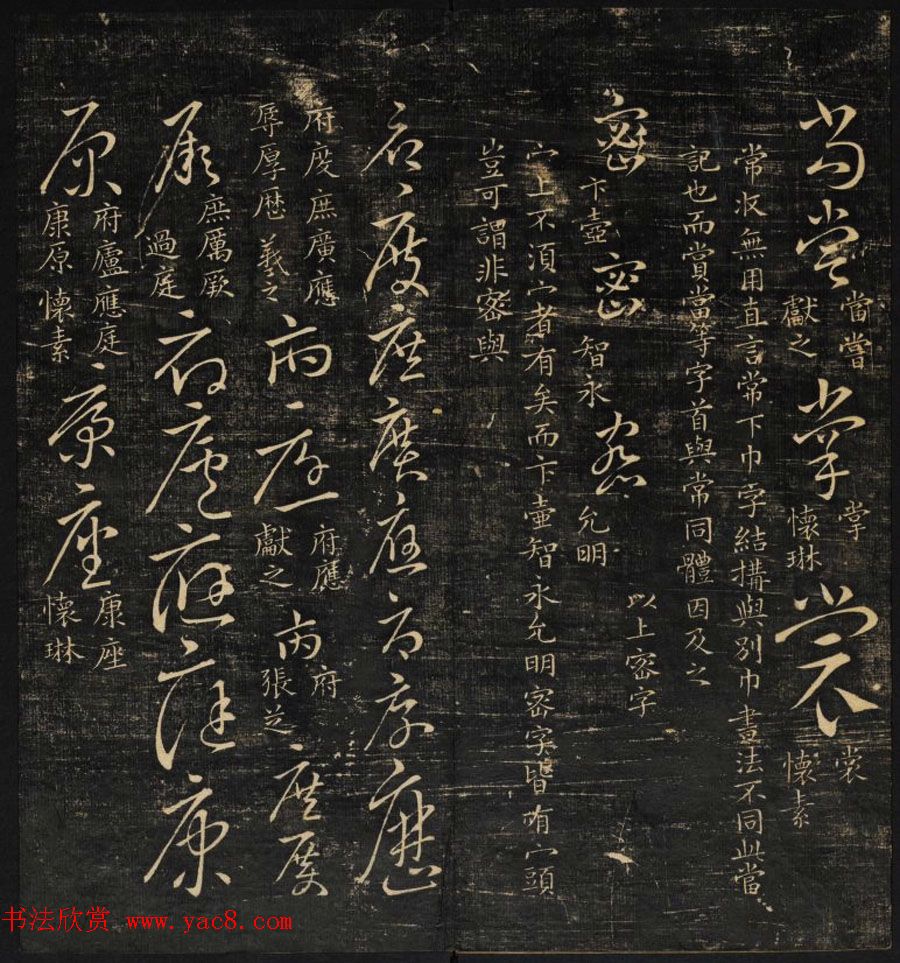 當嘗獻之 掌懷琳 裳懷素
常收無用直言常下巾字結搆與別巾畫法不同此當
記也而賞當等字首與常同體因及之
以上密字
密卞壺 密智永 密允明
宀上不須宀者有矣而卞壺智永允明密字皆有宀頭
豈可謂非密與
府度庶廣應府厚歷
府度庶廣應
辱厚歷羲之
府應獻之
府張芝
庶厲
庶厲厥過庭
府廬應庭康
府廬應庭
康原懷素
原座康座懷琳
书法欣赏 www.yac8.com